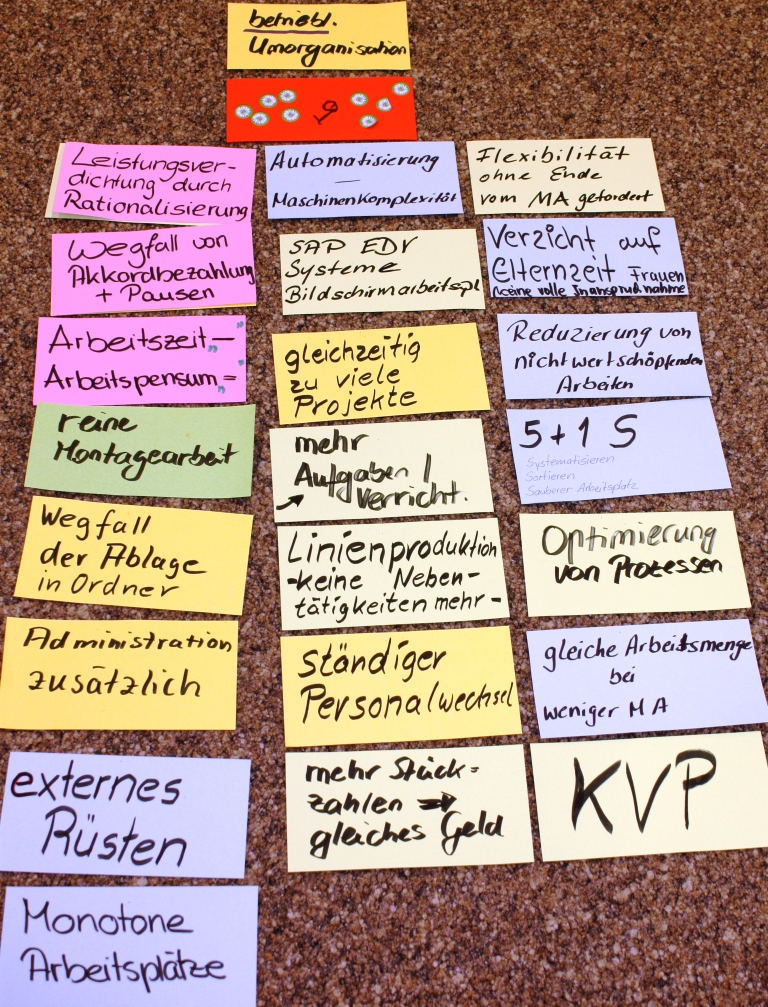 betriebl.
Umorganisation
9
Leistungsver-
dichtung durch
Rationalisierung
Wegfall von
Akkordbezahlung
+ Pausen
Arbeitszeit „—"
Arbeitspensum „="
reine
Montagearbeit
Wegfall
der Ablage
in Ordner
Administration
zusätzlich
externes
Rüsten
Monotone
Arbeitsplätze
Automatisierung
—
Maschinenkomplexität
SAP EDV
Systeme
Bildschirmarbeitspl
gleichzeitig
zu viele
Projekte
mehr
Aufgaben /
→ Verricht.
Linienproduktion
-keine Neben-
tätigkeiten mehr-
ständiger
Personalwechsel
mehr Stück=
zahlen ⇒
gleiches Geld
Flexibilität
ohne Ende
vom MA gefordert
Verzicht auf
Elternzeit Frauen
(keine volle Inanspruchnahme
Reduzierung von
nicht wertschöpfenden
Arbeiten
5+1 S
Systematisieren
Sortieren
Sauberer Arbeitsplatz
Optimierung
von Prozessen
gleiche Arbeitsmenge
bei
weniger MA
KVP